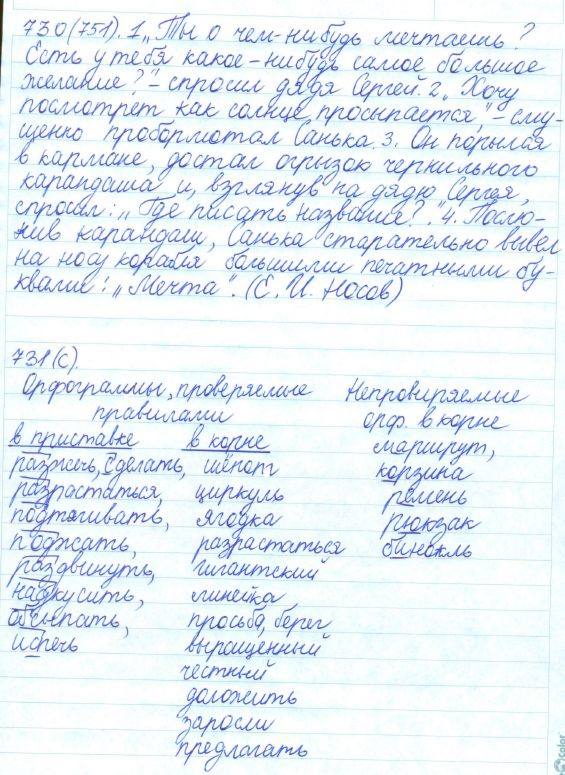 730(751). 1 „Ты о чем-нибудь мечтаешь?
Есть у тебя какое-нибудь самое большое
желание?" – спросил дядя Сергей. 2 „Хочу
посмотрет как солнце просыпается", – сму-
щенно пробормотал Санька. 3. Он порылся
в кармане, достал огрызок чернильного
карандаша и, взглянув на дядю Сергея,
спросил: „Где писать название?". 4. Послю-
нив карандаш, Санька старательно вывел
на носу корабля большими печатными бу-
квами: „Мечта". (Е. И. Носов)
731(с).
Орфограммы, проверяемые правилами
Непровиряемые орф. в корне
в приставке в корне маршрут,
разжечь, сделать, шёпот корзина
разрастаться, циркуль ремень
подтягивать, ягодка рюкзак
поджать, разрастаться бинокль
раздвинуть, гигантский
надкусить, линейка
обсыпать, просьба, берег
испечь выращенный
честный
доложить
заросли
предлагать
Color